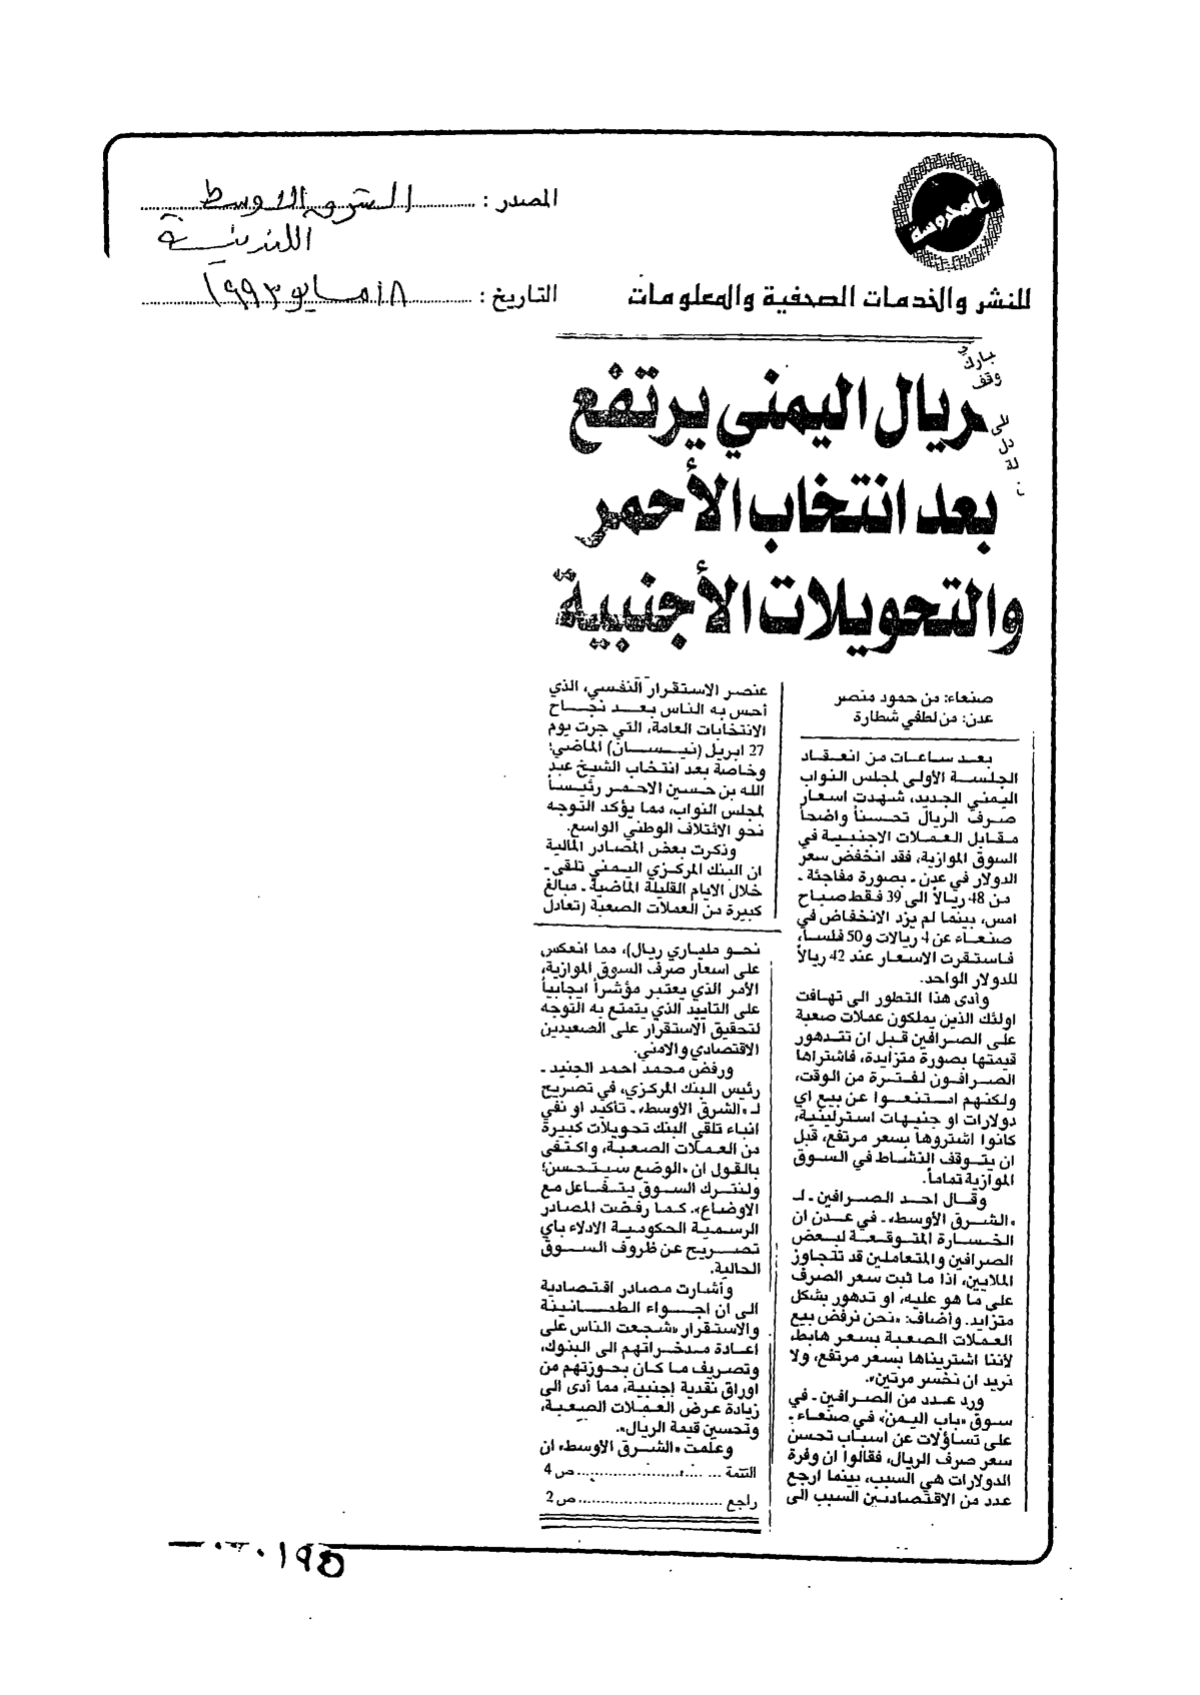 المحروسة
للنشر والخدمات الصحفية والمعلومات
المصدر : الشرق الاوسط
اللندنية
التاريخ : ١٨ مايو ١٩٩٣
ريال اليمني يرتفع
بعد انتخاب الأحمر
والتحويلات الأجنبية
صنعاء: من حمود منصر
عدن: من لطفي شطارة
بعد ساعات من انعقاد
الجلسة الأولى لمجلس النواب
اليمني الجديد، شهدت اسعار
صرف الريال تحسناً واضحاً
مقابل العملات الاجنبية في
السوق الموازية، فقد انخفض سعر
الدولار في عدن ـ بصورة مفاجئة ـ
من 48 ريالاً الى 39 فقط صباح
امس، بينما لم يزد الانخفاض في
صنعاء عن 4 ريالات و50 فلساً،
فاستقرت الاسعار عند 42 ريالاً
للدولار الواحد.
وأدى هذا التطور الى تهافت
اولئك الذين يملكون عملات صعبة
على الصرافين قبل ان تتدهور
قيمتها بصورة متزايدة، فاشتراها
الصرافون لفترة من الوقت،
ولكنهم استنعوا عن بيع اي
دولارات او جنيهات استرلينية،
كانوا اشتروها بسعر مرتفع، قبل
ان يتوقف النشاط في السوق
الموازية تماماً.
وقال احد الصرافين ـ لـ
«الشرق الأوسط» ـ في عدن ان
الخسارة المتوقعة لبعض
الصرافين والمتعاملين قد تتجاوز
الملايين، اذا ما ثبت سعر الصرف
على ما هو عليه، او تدهور بشكل
متزايد. وأضاف: «نحن نرفض بيع
العملات الصعبة بسعر هابط،
لأننا اشتريناها بسعر مرتفع، ولا
نريد ان نخسر مرتين».
ورد عدد من الصرافين ـ في
سوق «باب اليمن» في صنعاء ـ
على تساؤلات عن اسباب تحسن
سعر صرف الريال، فقالوا ان وفرة
الدولارات هي السبب، بينما ارجع
عدد من الاقتصاديين السبب الى
عنصر الاستقرار النفسي، الذي
أحس به الناس بعد نجاح
الانتخابات العامة، التي جرت يوم
27 ابريل (نيسان) الماضي؛
وخاصة بعد انتخاب الشيخ عبد
الله بن حسين الاحمر رئيساً
لمجلس النواب، مما يؤكد التوجه
نحو الائتلاف الوطني الواسع.
وذكرت بعض المصادر المالية
ان البنك المركزي اليمني تلقى ـ
خلال الايام القليلة الماضية ـ مبالغ
كبيرة من العملات الصعبة (تعادل
نحو ملياري ريال)، مما انعكس
على اسعار صرف السوق الموازية،
الأمر الذي يعتبر مؤشراً ايجابياً
على التاييد الذي يتمتع به التوجه
لتحقيق الاستقرار على الصعيدين
الاقتصادي والامني.
ورفض محمد احمد الجنيد ـ
رئيس البنك المركزي، في تصريح
لـ «الشرق الأوسط» ـ تأكيد او نفي
انباء تلقي البنك تحويلات كبيرة
من العملات الصعبة، واكتفى
بالقول ان «الوضع سيتحسن؛
ولنترك السوق يتفاعل مع
الاوضاع». كما رفضت المصادر
الرسمية الحكومية الادلاء باي
تصريح عن ظروف السوق
الحالية.
وأشارت مصادر اقتصادية
الى ان اجواء الطمانينة
والاستقرار «شجعت الناس على
اعادة مدخراتهم الى البنوك،
وتصريف ما كان بحوزتهم من
اوراق نقدية اجنبية، مما أدى الى
زيادة عرض العملات الصعبة،
وتحسين قيمة الريال».
وعلمت «الشرق الأوسط» ان
التتمة ........................ ص 4
راجع ........................ ص 2